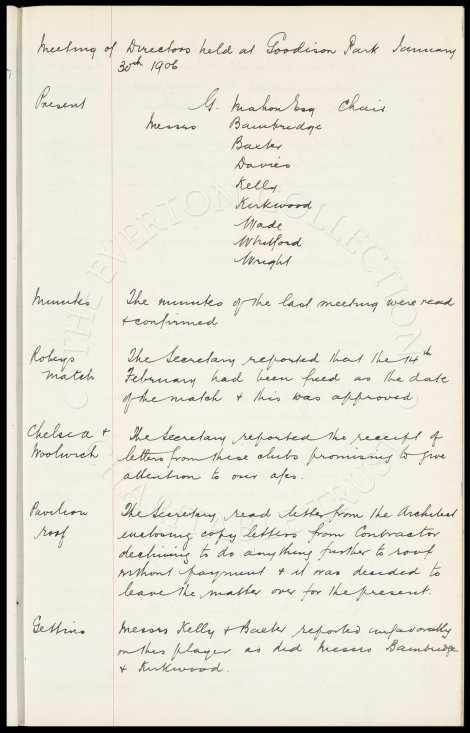 Meeting of Directors held at Goodison Park January
30th 1906
Present G. Mahon Esq Chair
Messrs Bainbridge
Baxter
Davies
Kelly
Kirkwood
Wade
Whitford
Wright
Minutes The minutes of the last meeting were read
& confirmed
Robeys The Secretary reported that the 14th
match February had been fixed as the date
of the match & this was approved
Chelsea & The Secretary reported the receipt of
Woolwich letters from these clubs promising to give
attention to our apes.
Pavilion The Secretary read letter from the Architect
roof enclosing copy letters from Contractor
declining to do anything further to roof
without payment & it was decided to
leave the matter over for the present.
Gettins Messrs Kelly & Baxter reported unfavorably
on this player as did Messrs Bainbridge
& Kirkwood.
THE EVERTON COLLECTION
CHARITABLE TRUST